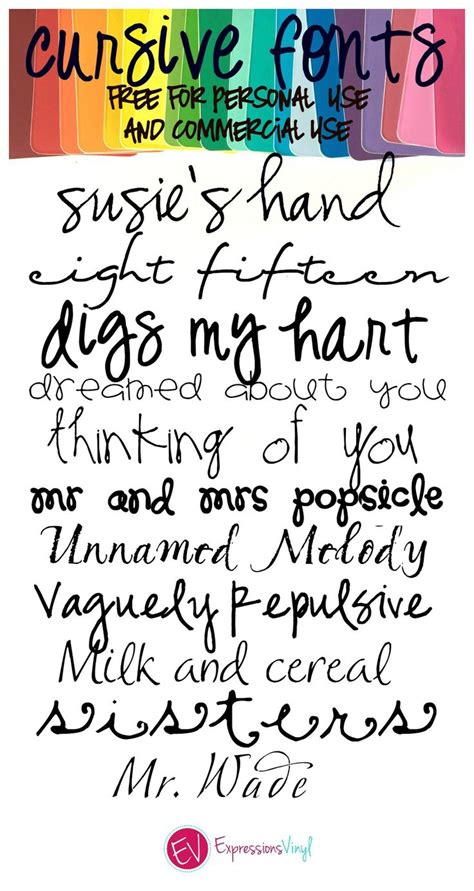 cursive fonts
FREE FOR PERSONAL USE
AND COMMERCIAL USE
susie's hand
eight fifteen
digs my hart
dreamed about you
thinking of you
mr and mrs popsicle
Unnamed Melody
Vaguely Repulsive
Milk and cereal
sisters
Mr. Wade
EV ExpressionsVinyl